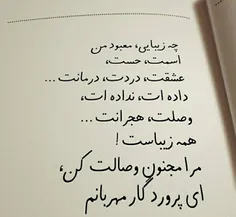 چه زیبایی، معبود من
اسمت، حست،
عشقت، دردت، درمانت ...
داده ات، نداده ات،
وصلت، هجرانت ...
همه زیباست !
مرا مجنون وصالت کن،
ای پروردگار مهربانم